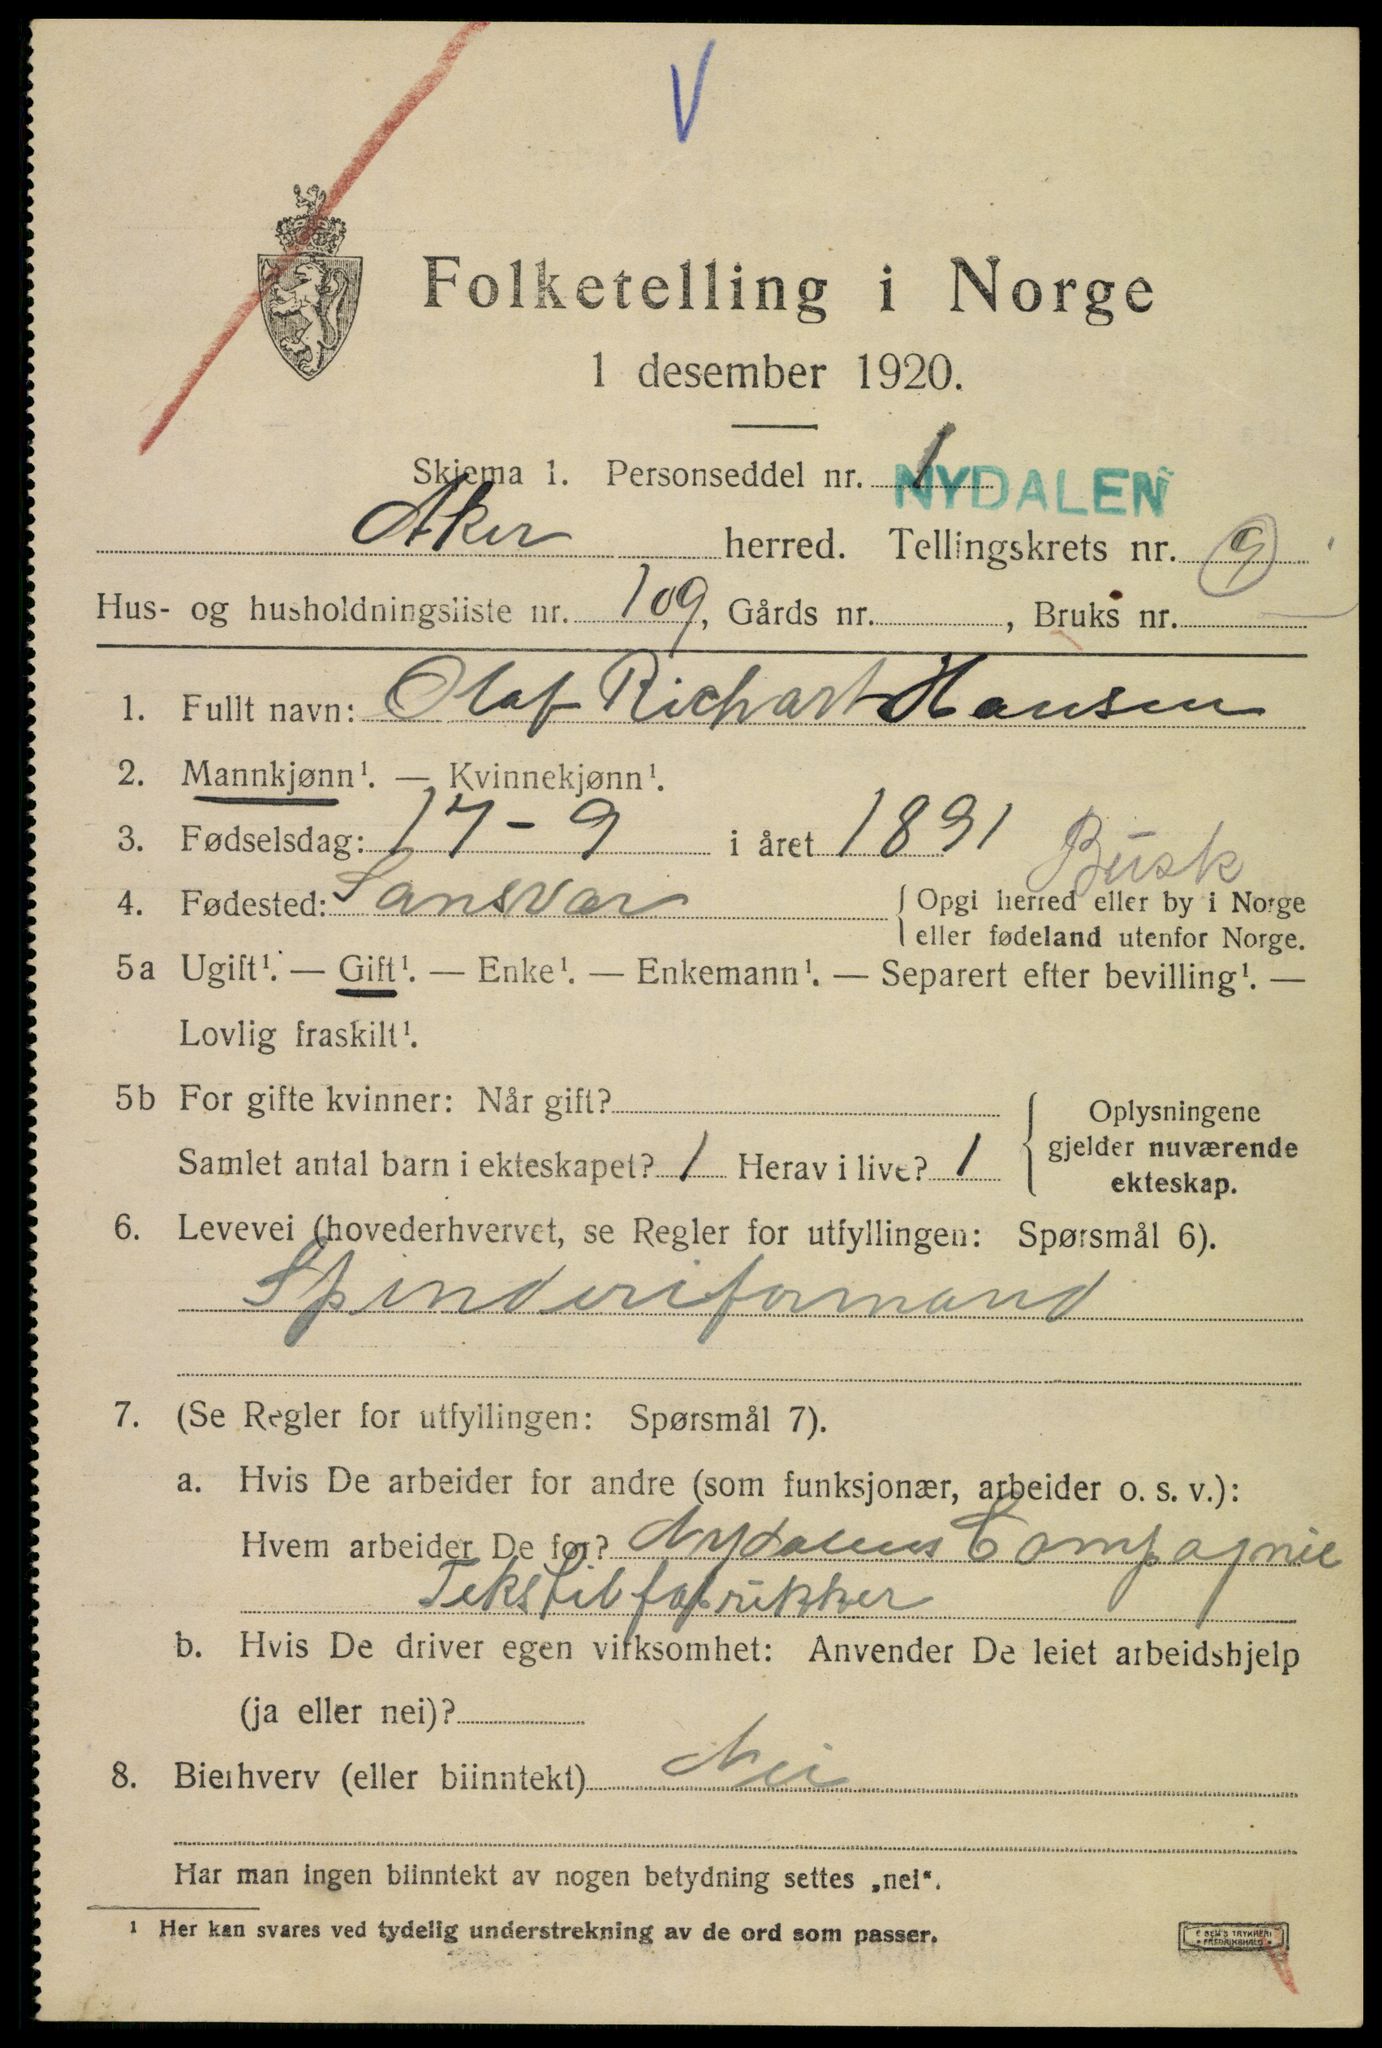 V
Folketelling i Norge
1 desember 1920.
Skjema 1. Personseddel nr. 1
NYDALEN
Aker herred. Tellingskrets nr. 9
Hus- og husholdningsliste nr. 109, Gårds nr. , Bruks nr.
1. Fullt navn: Olaf Richart Hansen
2. Mannkjønn¹. — Kvinnekjønn¹.
3. Fødselsdag: 17 - 9 i året 1891
Busk
4. Fødested: Sansvær { Opgi herred eller by i Norge
eller fødeland utenfor Norge.
5a Ugift¹. — Gift¹. — Enke¹. — Enkemann¹. — Separert efter bevilling¹. —
Lovlig fraskilt¹.
5b For gifte kvinner: Når gift?
Samlet antal barn i ekteskapet? 1 Herav i live? 1
{ Oplysningene
gjelder nuværende
ekteskap.
6. Levevei (hovederhvervet, se Regler for utfyllingen: Spørsmål 6).
Spinderiformand
7. (Se Regler for utfyllingen: Spørsmål 7).
a. Hvis De arbeider for andre (som funksjonær, arbeider o. s. v.):
Hvem arbeider De for? Nydalens Compagnie
Tekstilfabrikker
b. Hvis De driver egen virksomhet: Anvender De leiet arbeidshjelp
(ja eller nei)?
8. Bierhverv (eller biinntekt) Nei
Har man ingen biinntekt av nogen betydning settes „nei“.
¹ Her kan svares ved tydelig understrekning av de ord som passer.